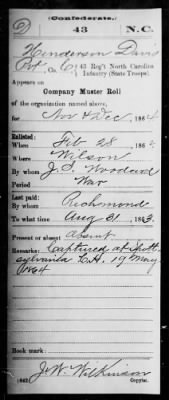 (Confederate.)
43 N.C.
Henderson Davis
Pvt, Co. C, 43 Reg't North Carolina
Infantry (State Troops)
Appears on
Company Muster Roll
of the organization named above,
for Nov & Dec, 1864
Enlisted:
When Feb 28, 186
Where Wilson
By whom J. S. Woodard
Period War
Last paid:
By whom Richmond
To what time Aug 31, 1863
Present or absent absent
Remarks: Captured at Spott
sylvania C.H. 19 May
1864
Book mark:
J. W. Wilkinson
(642) Copyist.